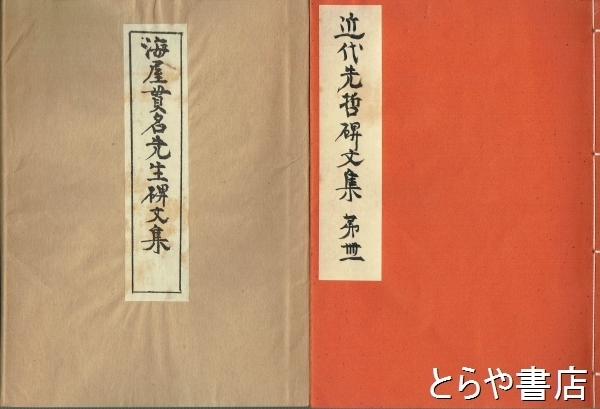 海屋貫名先生碑文集
近代先哲碑文集 第卅一
とらや書店